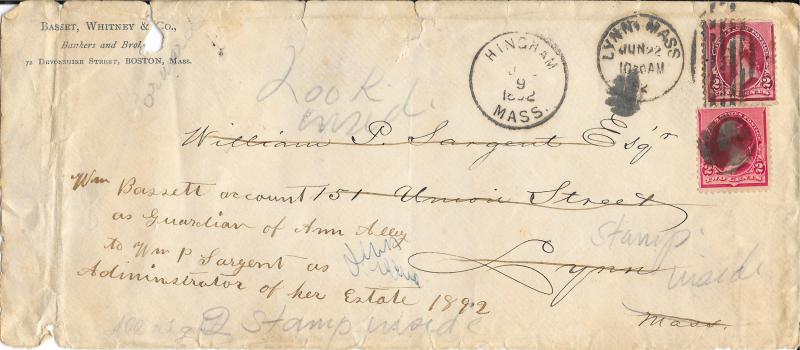 BASSET, WHITNEY & CO.,
Bankers and Brok
72 DEVONSHIRE STREET, BOSTON, MASS.
HINGHAM
9
1892
MASS.
LYNN, MASS
JUN 22
10-30AM
2 2
TWO CENTS
2 2
Look
inside
William P. Sargent Esqr
151 Union Street
Lynn
Mass.
Wm Bassett account
as Guardian of Ann Alley
to Wm P Sargent as
Adiminstrator of her Estate 1892
Stamp
inside
2 Stamp inside